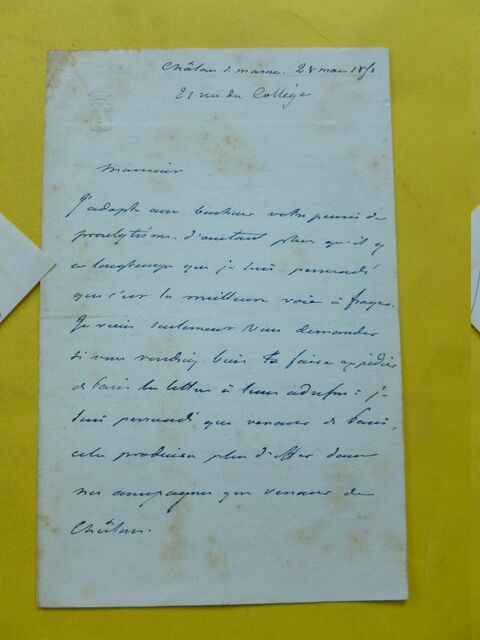 Châlons s. marne. 28 mars 18
21 rue du Collège
Monsieur
J'adopte avec bonheur votre pensée de
proselytisme d'autant plus qu'il y
a longtemps que je suis persuadé
que c'est la meilleure voie à frayer.
Je viens seulement vous demander
si vous voudriez bien faire expédier
de Paris les lettres à leurs adresses : je
suis persuadé que venant de Paris,
cela produira plus d'effet dans
nos campagnes que venant de
Châlons.